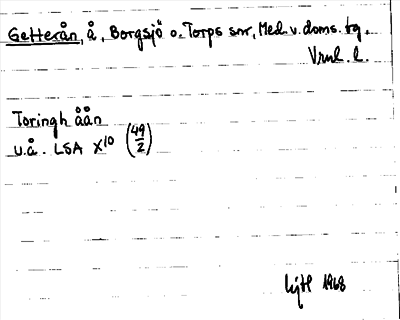 Getterån, å, Borgsjö o. Torps snr, Med. v. doms. tg.
Vrnl. l.
Toringh åån
u.å. LSA X10 (49/2)
1968